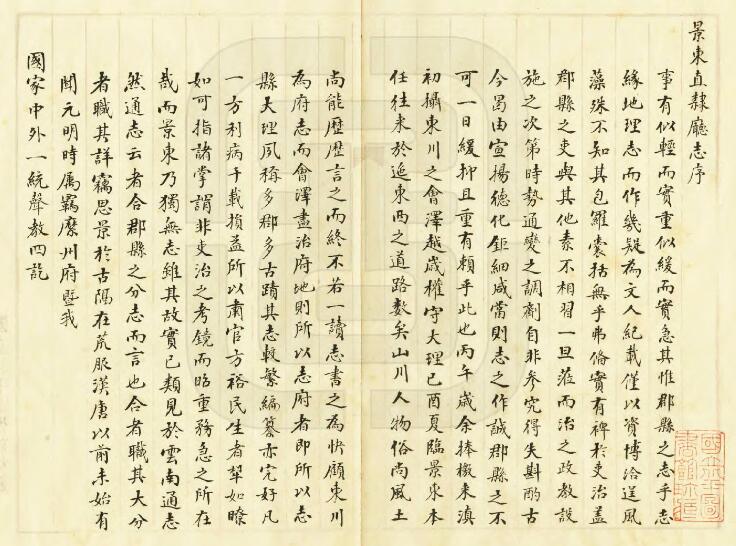 景東直隸廳志序
事有似輕而實重似緩而實急其惟郡縣之志乎志
緣地理志而作幾疑為文人紀載僅以資博洽逞風
藻殊不知其包羅囊括無乎弗備實有裨於吏治蓋
郡縣之吏與其他素不相習一旦蒞而治之政教設
施之次第時勢通變之調劑自非參究得失斟酌古
今曷由宣揚德化鉅細咸當則志之作誠郡縣之不
可一日緩抑且重有賴乎此也丙午歲余捧檄来滇
初攝東川之會澤越歲權守大理已酉夏臨景東本
任往来於迤東西之道路數矣山川人物俗尚風土
尚能歷歷言之而終不若一讀志書之為快顧東川
為府志而會澤盡治府地則所以志府者即所以志
縣大理夙稱多郡多古蹟其志較繁編纂亦完好凡
一方利病千載損益所以肅官方裕民生者犂如瞭
如可指諸掌謂非吏治之考鏡而昭重務急之所在
哉而景東乃獨無志雖其故實已類見於雲南通志
然通志云者合郡縣之分志而言也合者職其大分
者職其詳竊思景於古隅在荒服漢唐以前未始有
聞元明時属羈縻州府暨我
國家中外一統聲教四訖